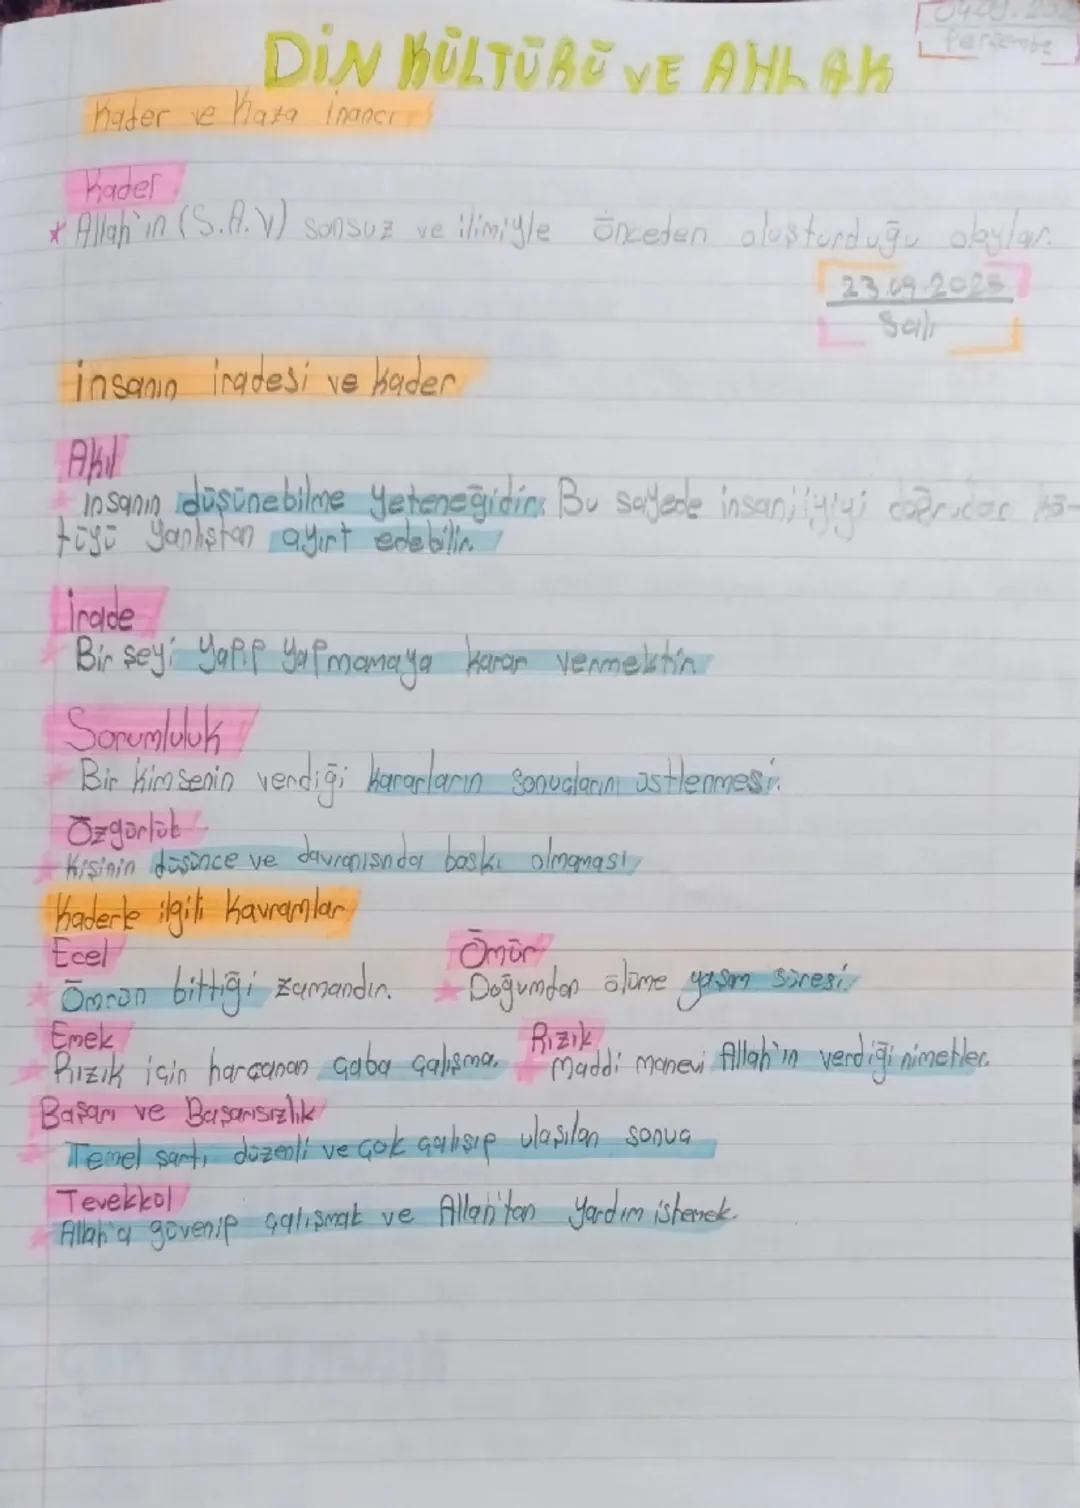 DİN KÜLTÜRÜ VE AHLAK
Perşembe
Kader ve Kaza İnancı
Kader
* Allah'ın (S.A.V) sonsuz ve ilimiyle önceden oluşturduğu olaylar.
23.09.2025
Salı
İnsanın iradesi ve Kader
Akıl
* İnsanın düşünebilme yeteneğidir. Bu sayede insan iyiyi doğrudan kö-
tüyü yanlıştan ayırt edebilir.
İrade
* Bir şeyi yapıp yapmamaya karar vermektir.
Sorumluluk
* Bir kimsenin verdiği kararların sonuçlarını üstlenmesi.
Özgürlük
* Kişinin düşünce ve davranışında baskı olmaması
Kaderle ilgili Kavramlar
Ecel Ömür
* Ömrün bittiği zamandır. * Doğumdan ölüme yaşam süresi.
Emek Rızık
* Rızık için harcanan çaba çalışma. * Maddi manevi Allah'ın verdiği nimetler.
Başarı ve Başarısızlık
* Temel şartı düzenli ve çok çalışıp ulaşılan sonuç
Tevekkül
* Allah'a güvenip çalışmak ve Allah'tan yardım istemek.